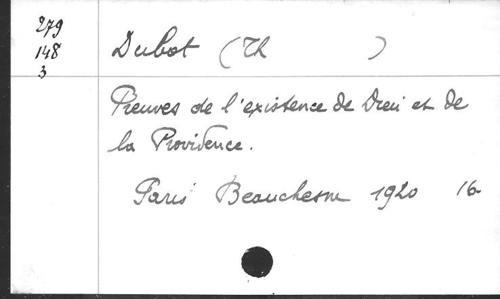 279
148
3
Dubot (Th )
Preuves de l'existence de Dieu et de
la Providence.
Paris Beauchesne 1920 16-